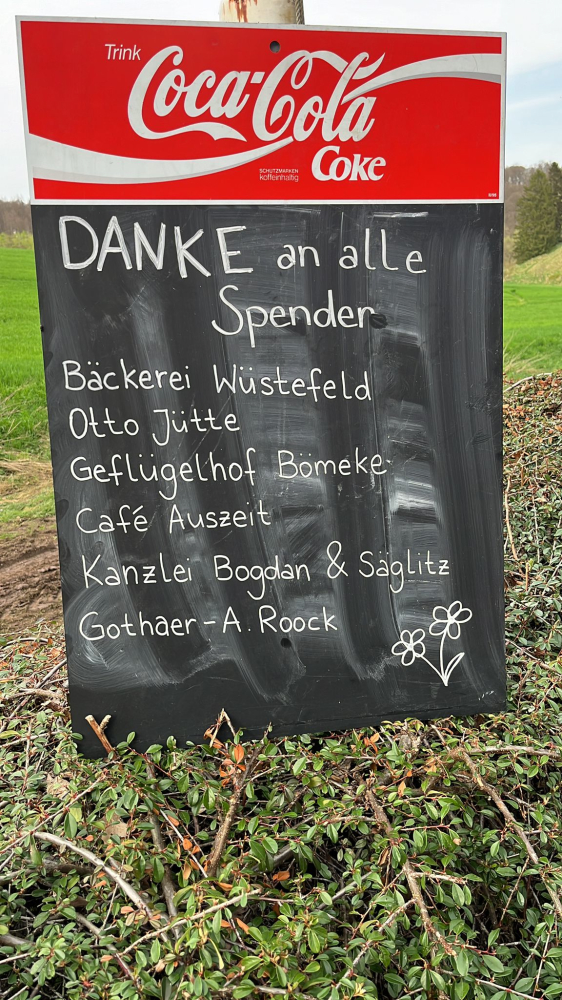 Trink
Coca-Cola
Coke
SCHUTZMARKEN
koffeinhaltig
DANKE an alle
Spender
Bäckerei Wüstefeld
Otto Jütte
Geflügelhof Bömeke
Café Auszeit
Kanzlei Bogdan & Säglitz
Gothaer-A. Roock